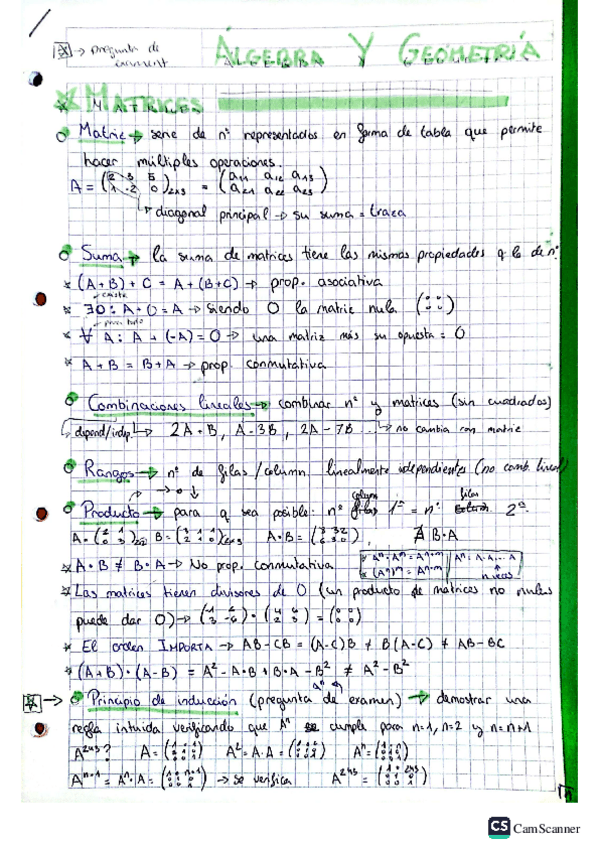 * → pregunta de examen
ÁLGEBRA Y GEOMETRÍA
* MATRICES
Matriz → serie de nº representados en forma de tabla que permite
hacer múltiples operaciones.
A = (2 3 5 / 1 -2 0)2x3 = (a11 a12 a13 / a21 a22 a23)
diagonal principal → su suma = traza
Suma → la suma de matrices tiene las mismas propiedades q la de nº
* (A + B) + C = A + (B + C) → prop. asociativa
existe
* ∃ 0 : A + 0 = A → siendo 0 la matriz nula
para todo
* ∀ A : A + (-A) = 0 → una matriz más su opuesta = 0
* A + B = B + A → prop. conmutativa
Combinaciones lineales → combinar nº y matrices (sin cuadrados)
depend/indp. → 2A + B, A - 3B, 2A - 7B ... → no cambia con matriz
Rangos → nº de filas/column. linealmente independientes (no comb. lineal)
Producto → para q sea posible: nº column 1ª = nº filas 2ª
A · B = , ∄ B · A
* A · B ≠ B · A → No prop. conmutativa
Aⁿ · Aᵐ = Aⁿ⁺ᵐ
(Aⁿ)ᵐ = Aⁿ·ᵐ
Aⁿ = A · A ... A
n veces
* Las matrices tienen divisores de 0 (un producto de matrices no nulas
puede dar 0) →
* El orden IMPORTA → AB - CB = (A - C)B ≠ B(A - C) ≠ AB - BC
* (A + B) · (A - B) = A² - A · B + B · A - B² ≠ A² - B²
* → Principio de inducción (pregunta de examen) → demostrar una
regla intuida verificando que Aⁿ se cumpla para n=1, n=2 y n=n+1
A²⁴⁵? A = A² = A · A = Aⁿ =
Aⁿ⁺¹ = Aⁿ · A = → se verifica A²⁴⁵ =
CS CamScanner